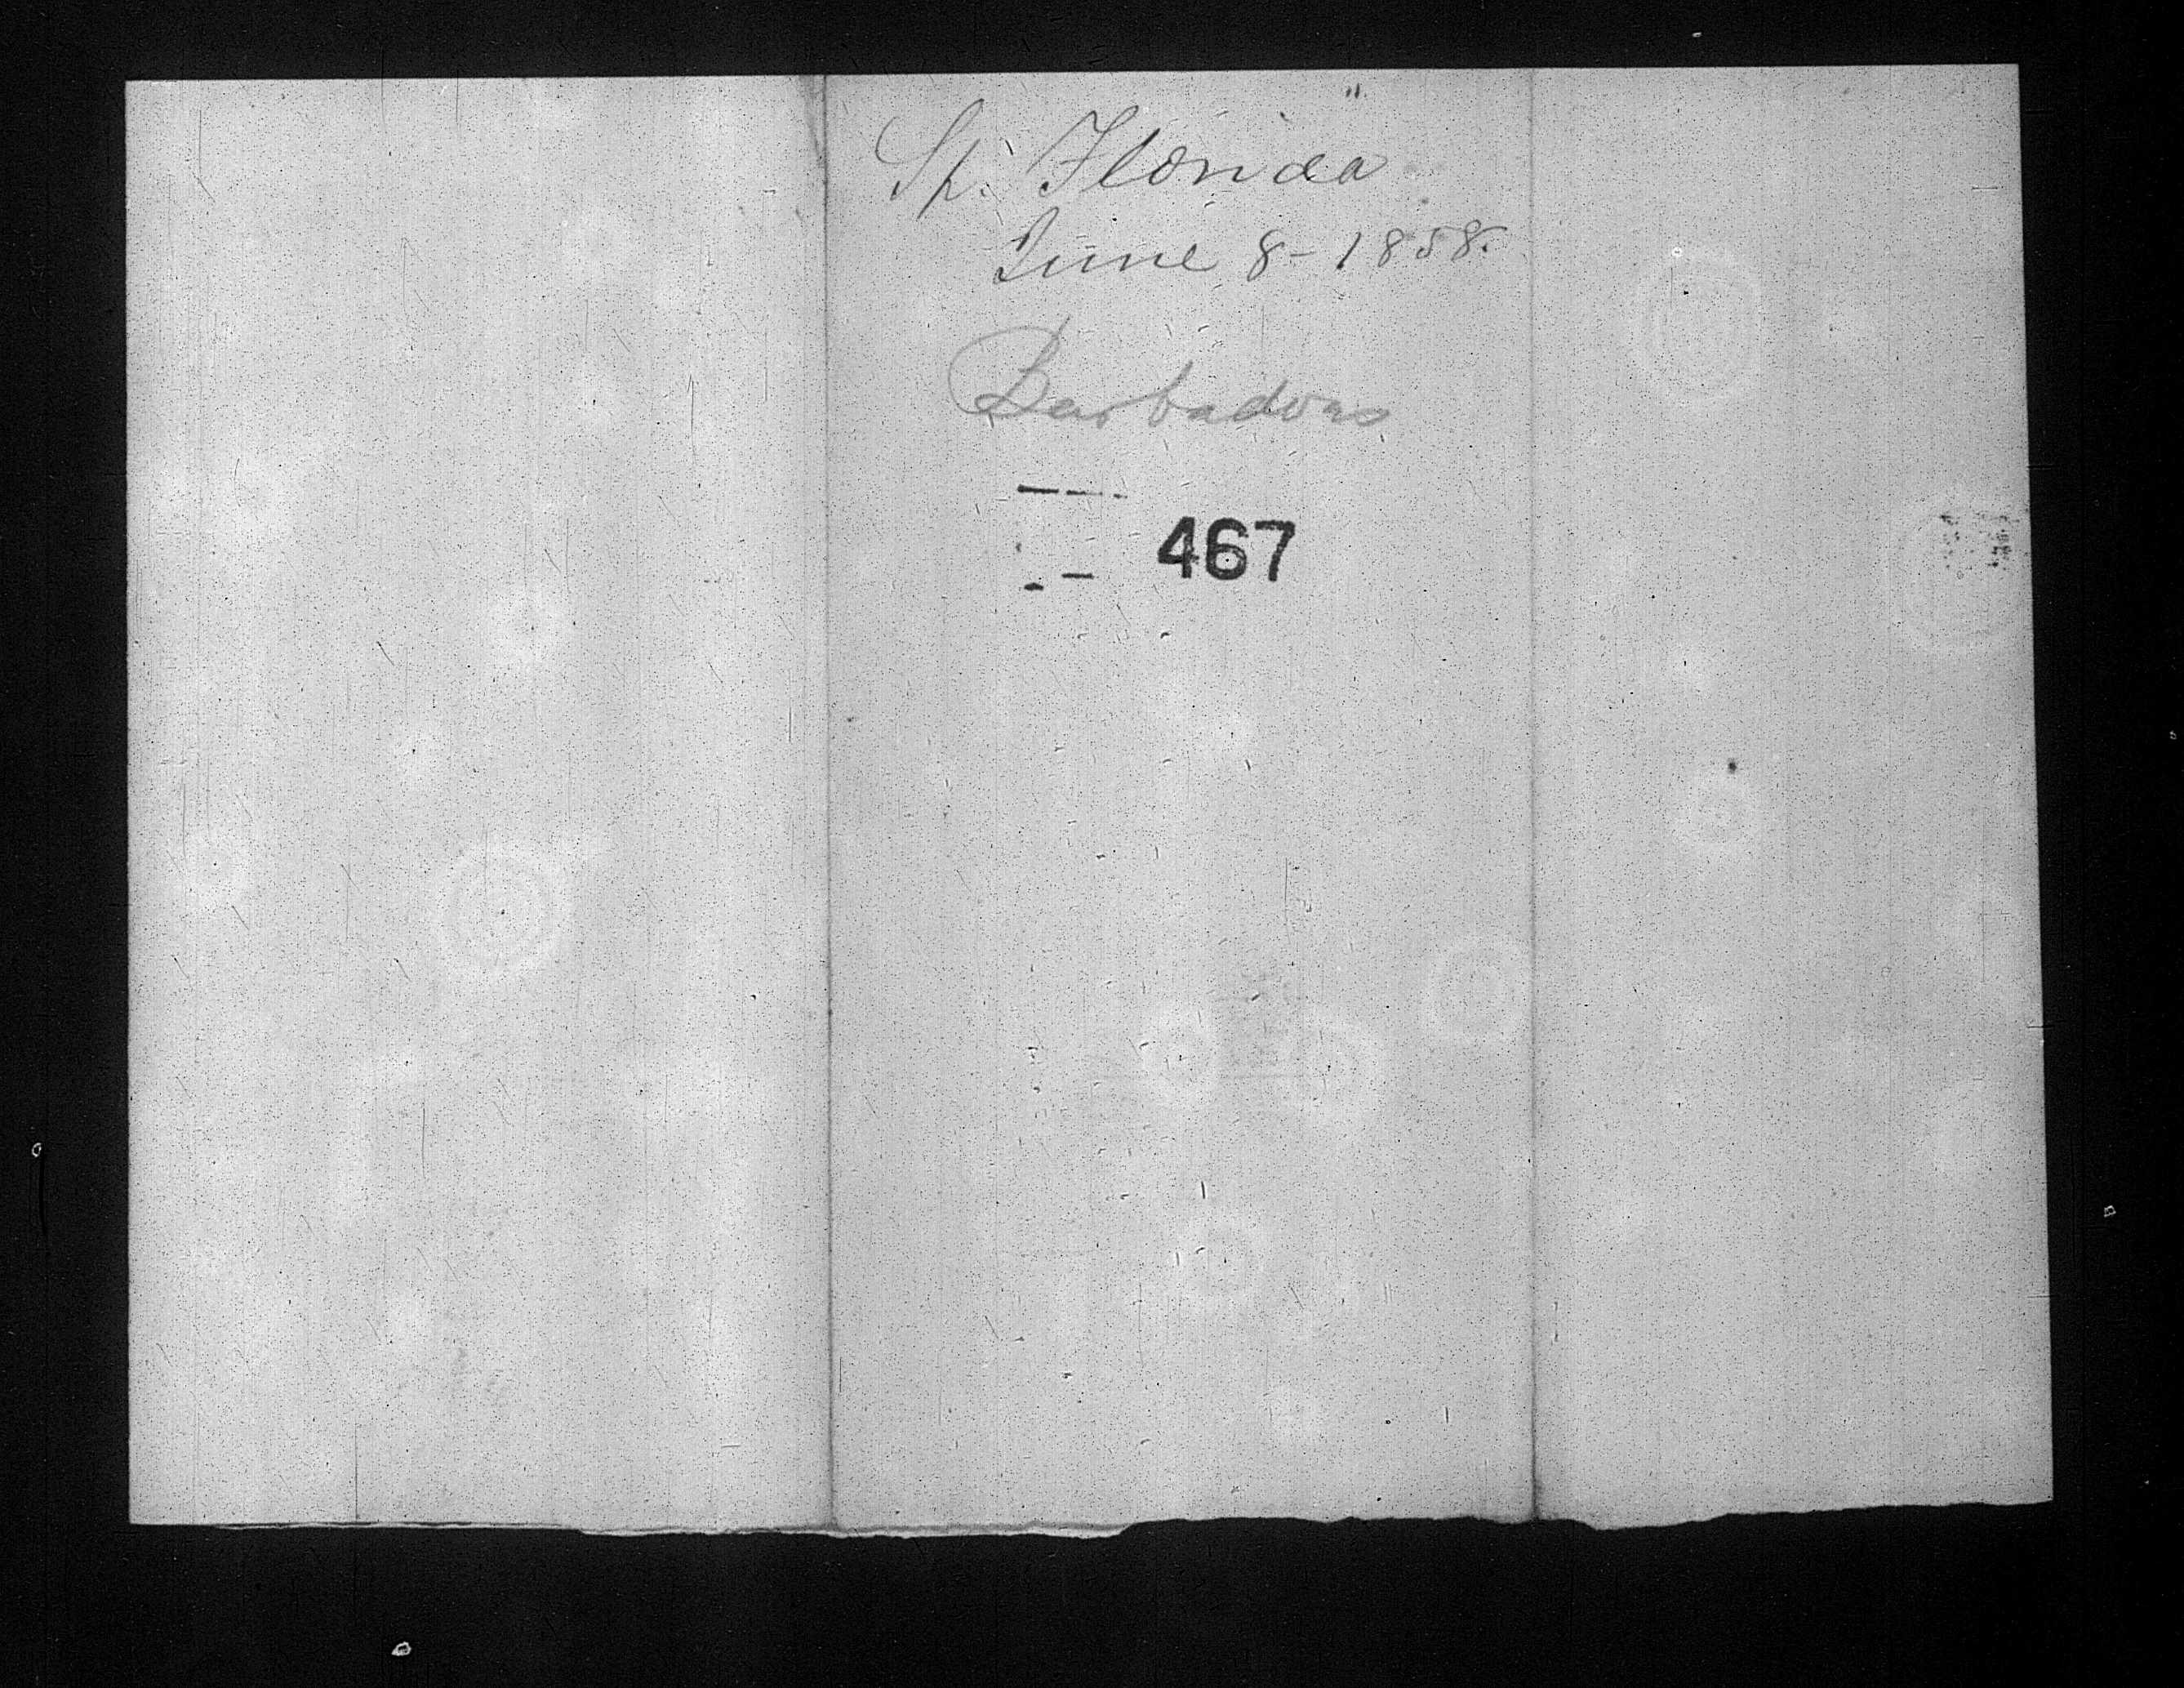 Sh. Florida
June 8 - 1858.
Barbadoes
467